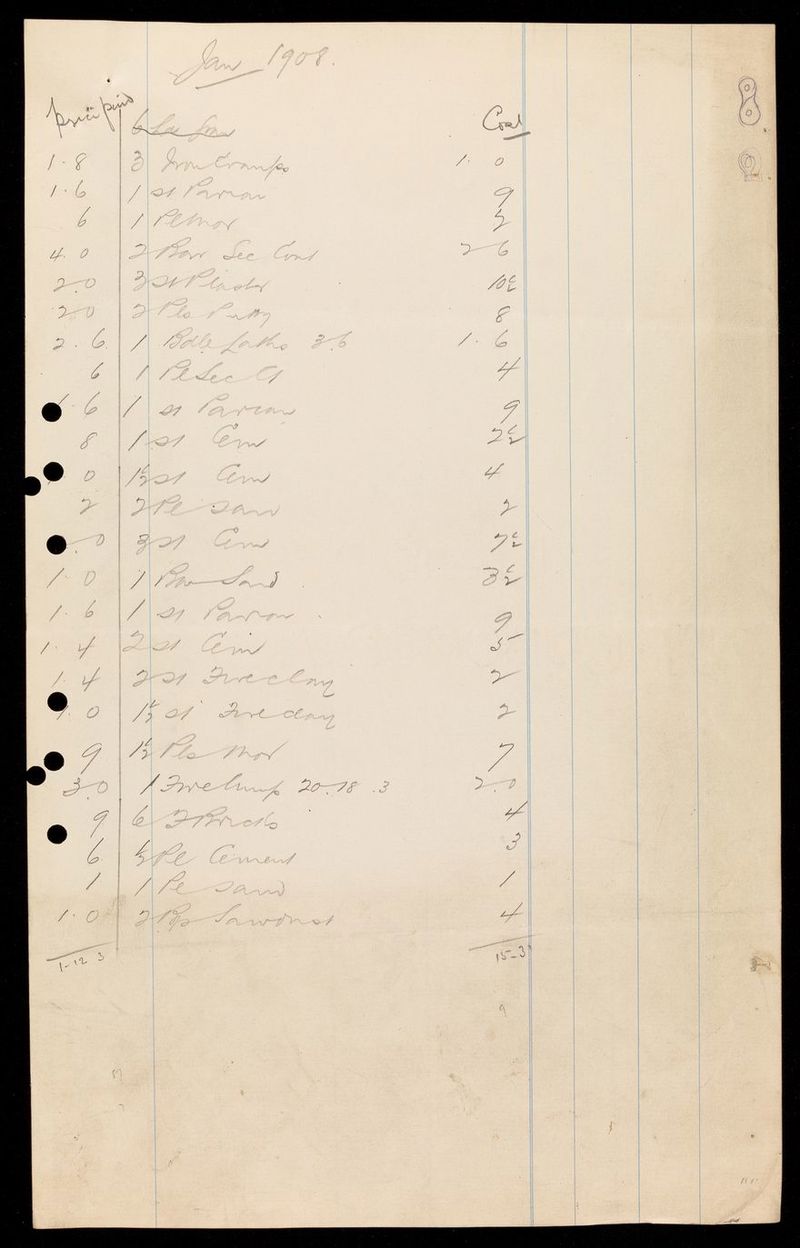 Jan 1908.
price paid Cost
6
1.8 3 Iron Cramps 1. 0
1.6 1 st Parian 9
6 1 Pl Mor 2
4.0 2 Barr Sec Cont 2 6
2.0 3 st Plaster 10½
2 0 2 Pls Putty 8
2.6. 1 Bdle Laths 3.6 1. 6
6 1 Pl Sec Ct 4
1.6 1 st Parian 9
8 1 st Cem 2½
0 1½ st Cem 4
2 2 Pl Sand 2
.0 3 st Cem 7½
1.0 1 Bar Sand 3½
1.6 1 st Parian 9
1.4 2 st Cem 5
1.4 2 st Fireclay 2
1.0 1½ st Fireclay 2
9 1½ Pls Mor 7
3.0 1 Firelump 20.18.3 2.0
9 6 F Bricks 4
6 ½ Pl Cement 3
1 1 Pl Sand 1
1.0 2 Bgs Sawdust 4
1-12 3 15-3